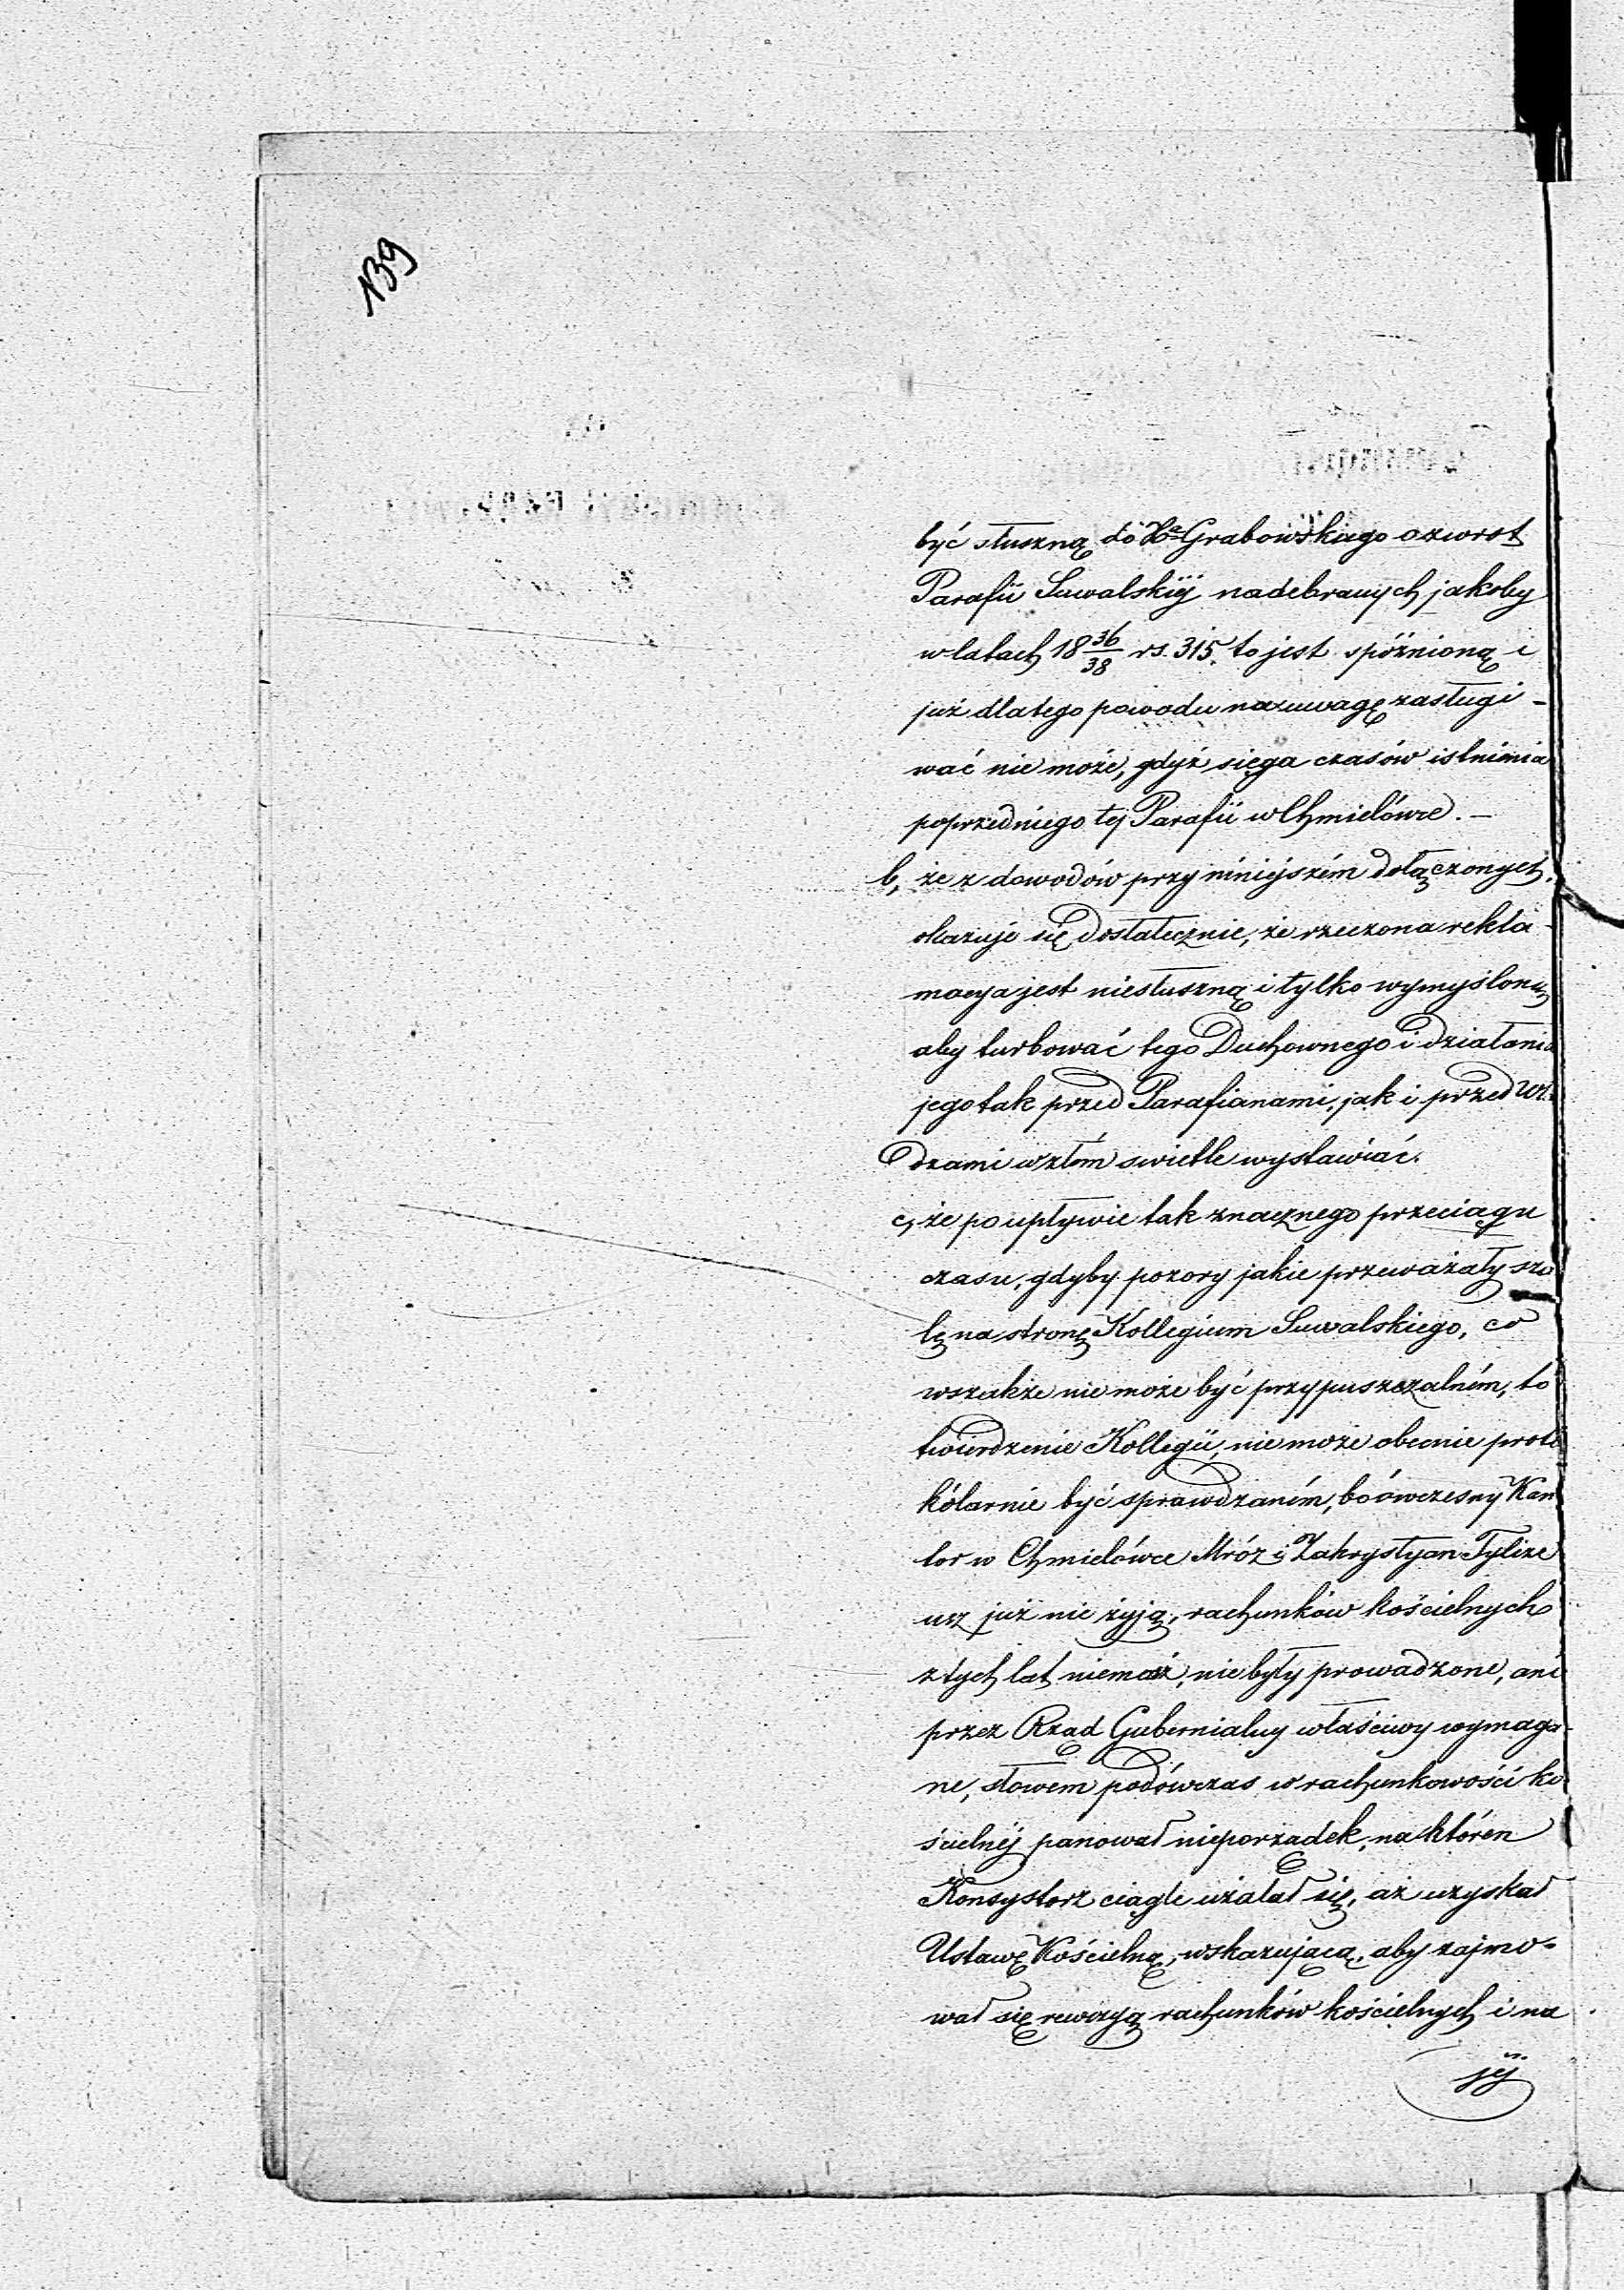 139
być słuszną do Xa Grabowskiego o zwrot
Parafii Suwalskiéj nadebranych jakoby
w latach 18 36/38 rs. 315. to jest spóźnioną i
już dla tego powodu na uwagę zasługi-
wać nie może, gdyż sięga czasów istnienia
poprzedniego tej Parafii w Chmielówce. –
b, że z dowodów przy niniejszém dołączonych.
okazuje się dostatecznie, że rzeczona rekla-
macya jest niesłuszną i tylko wymysloną
aby turbować tego Duchownego i działania
jego tak przed Parafianami, jak i przed Wł
dzami w złém swietle wystawiać.
c, że po upływie tak znacznego przeciągu
czasu, gdyby pozory jakie przeważały sza
lę na stronę Kollegium Suwalskiego, co
wszakże nie może być przypuszczalném, to
twierdzenie Kollegii, nie może obecnie proto
kólarnie być sprawdzaném, bo ówczesny Kan
tor w Chmielówce Mróz i Zakrystyan Tylize
usz już nie żyją, rachunków kościelnych
z tych lat niemasz, nie były prowadzone, ani
przez Rząd Gubernialny właściwy wymaga-
ne, słowem podówczas w rachunkowości ko
ścielnéj panował nieporządek, na któren
Konsystorz ciągle użalał się, aż uzyskał
Ustawę Kościelną, wskazującą, aby zajmo-
wał się rewizyą rachunków kościelnych i na
jéj